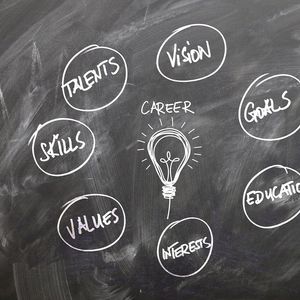 VISION
TALENTS
CAREER
GOALS
SKILLS
EDUCATIO
VALUES
INTERESTS